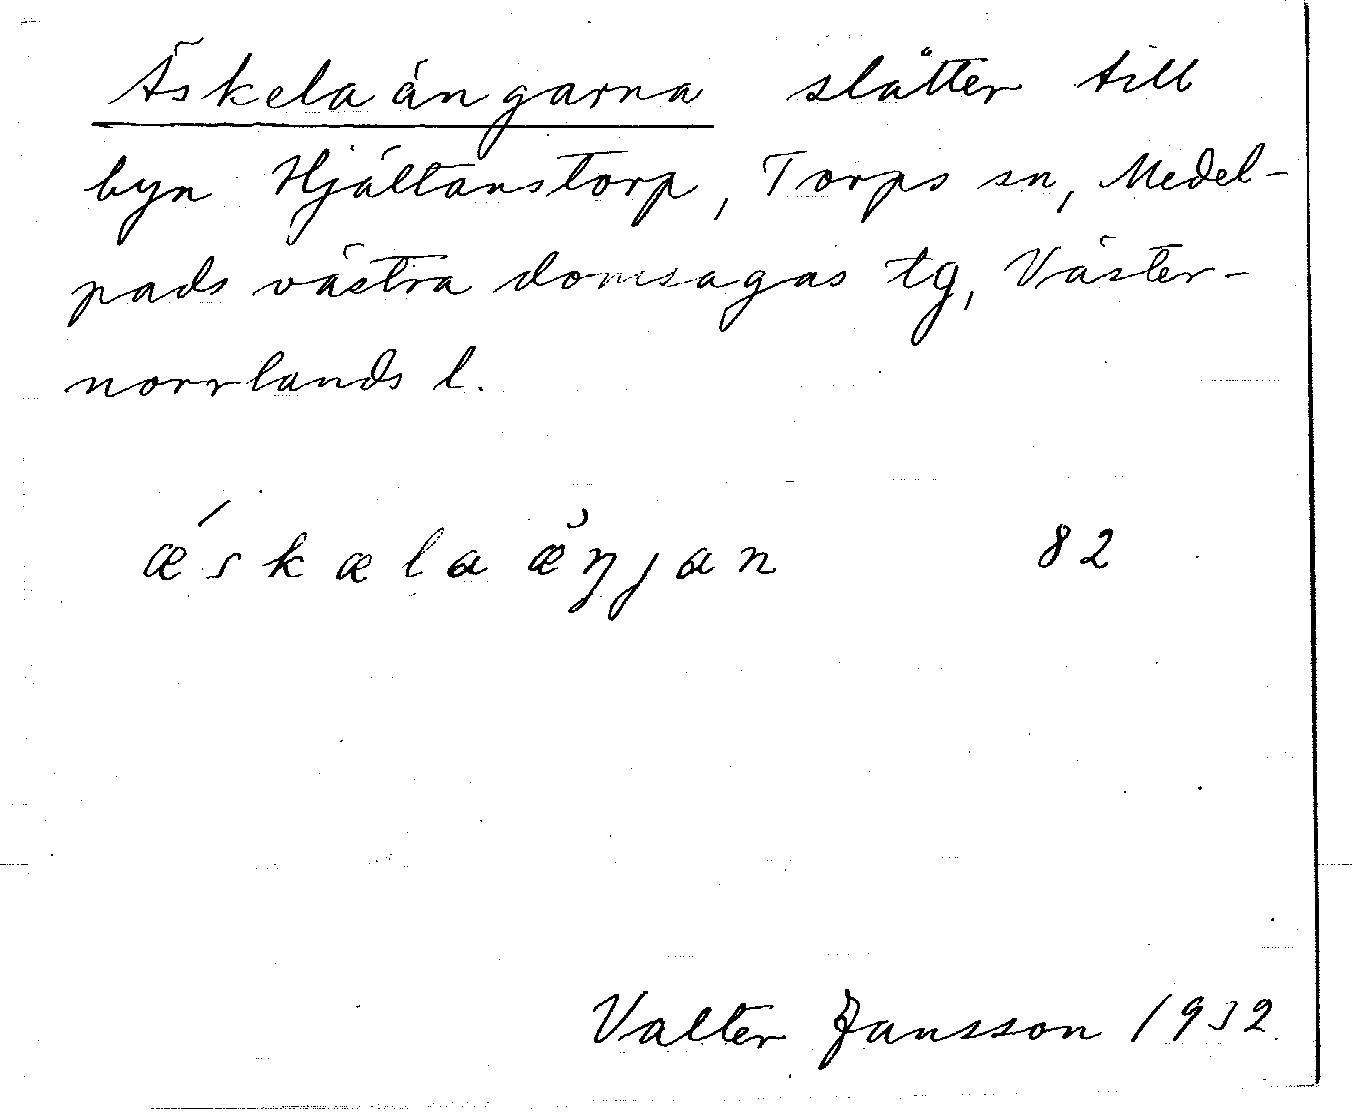 Äskelaängarna slåtter till
byn Hjältanstorp, Torps sn, Medel-
pads västra domsagas tg, Väster-
norrlands l.
ǽskælaæ̆ŋjan 82
Valter Jansson 1932